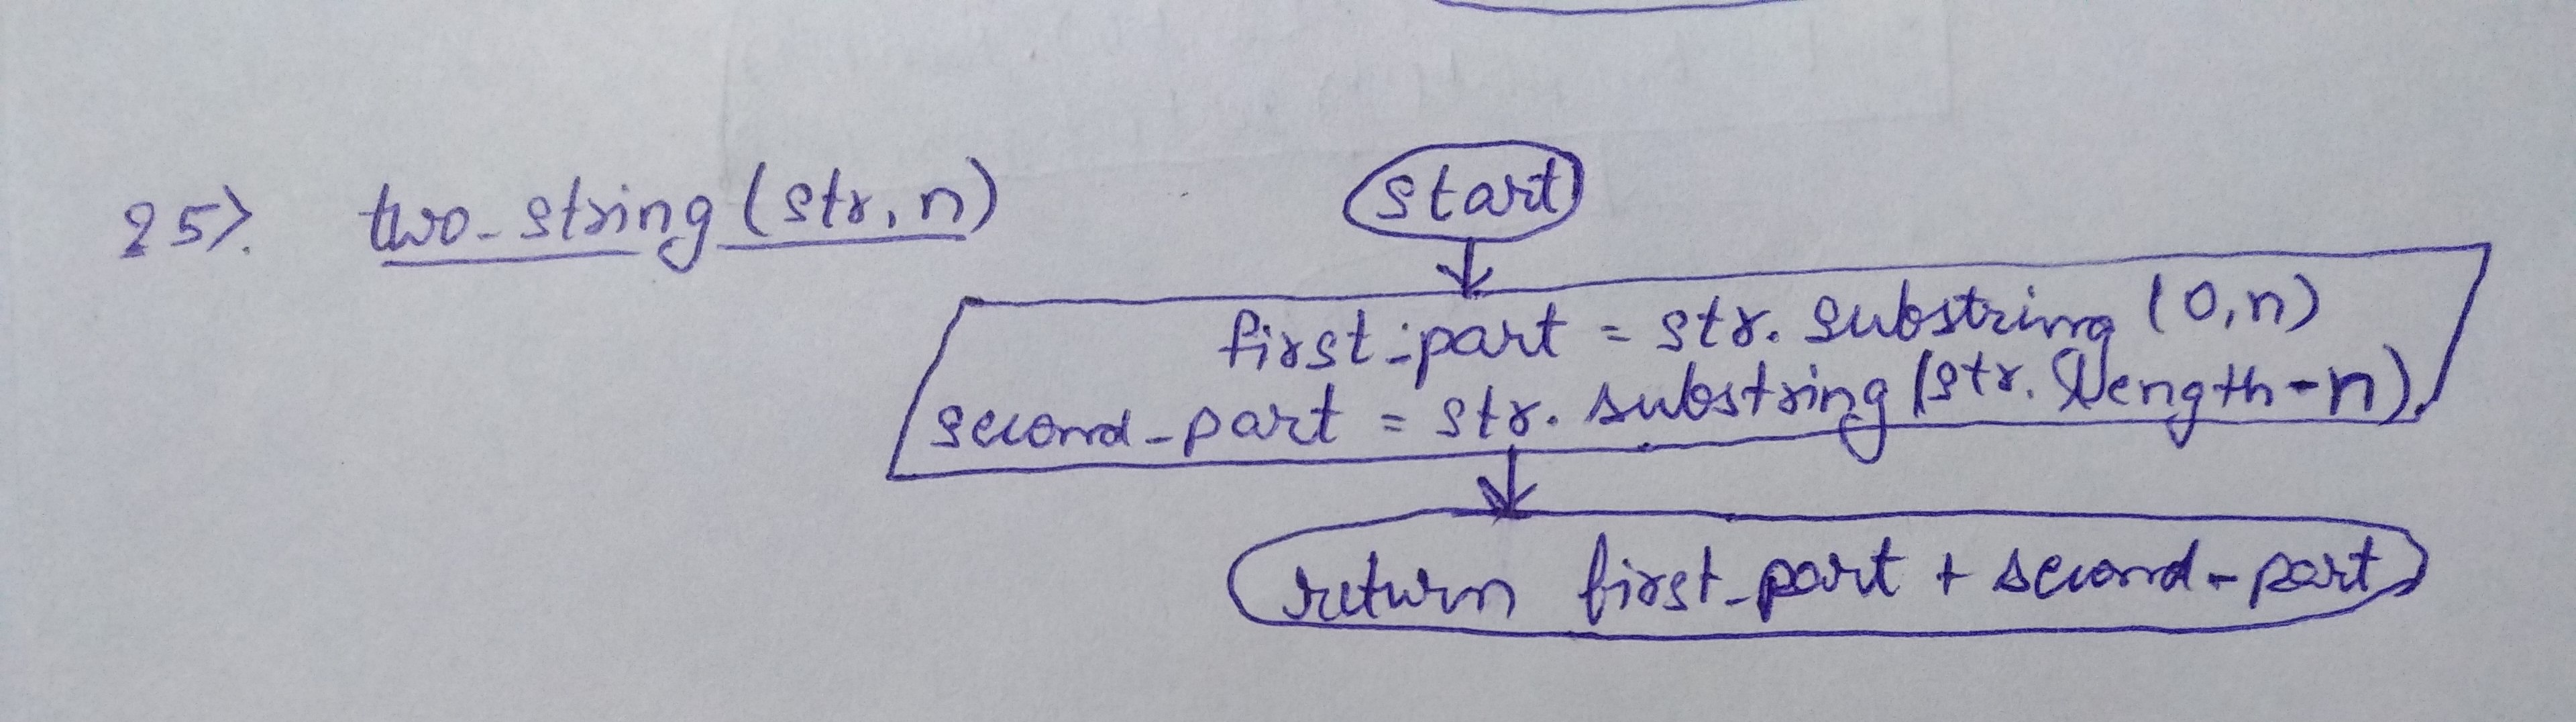 25>. two_string(str, n)
start
first_part = str. substring (0,n)
second_part = str. substring (str. length - n).
return first_part + second_part